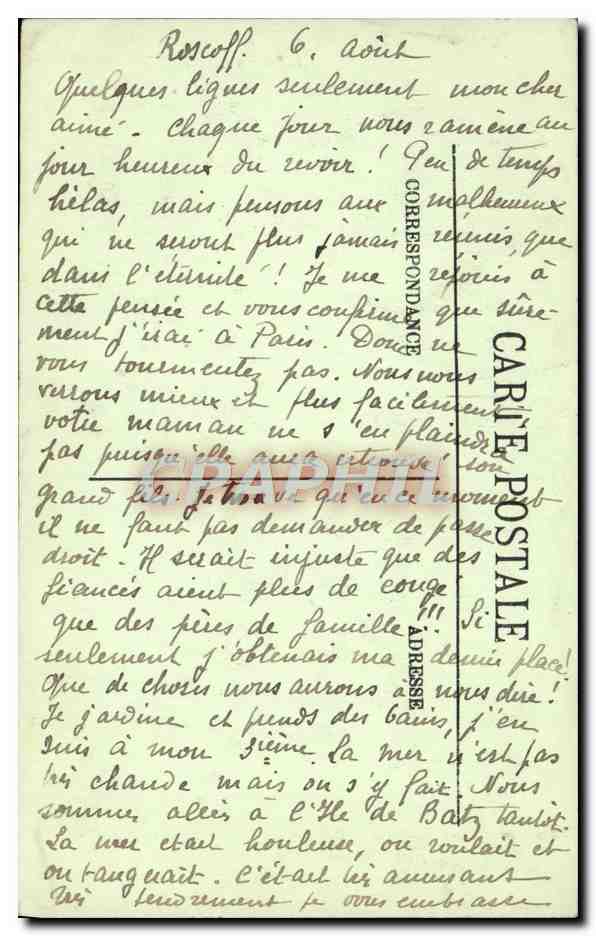 Roscoff. 6. Août
Quelques lignes seulement mon cher
aimé. Chaque jour nous ramène au
jour heureux du revoir! Peu de temps
hélas, mais pensons aux malheureux
qui ne seront plus jamais réunis, que
dans l'éternité! Je me réjouis à
cette pensée et vous confirme que sûre-
ment j'irai à Paris. Donc ne
vous tourmentez pas. Nous nous
verrons mieux et plus facilement
votre maman ne s'en plaindra
pas puisqu'elle aura retrouvé son
grand fils. Je trouve qu'en ce moment
il ne faut pas demander de passe
droit. Il serait injuste que des
fiancés aient plus de congé
que des pères de famille!!! Si
seulement j'obtenais ma demie place!
Que de choses nous aurons à nous dire!
Je jardine et prends des bains, j'en
suis à mon 3ième. La mer n'est pas
très chaude mais on s'y fait. Nous
sommes allés à l'Ile de Batz tantôt.
La mer était houleuse, on roulait et
on tanguait. C'était très amusant
Très tendrement je vous embrasse
CARTE POSTALE
CORRESPONDANCE
ADRESSE
CPAPHIL